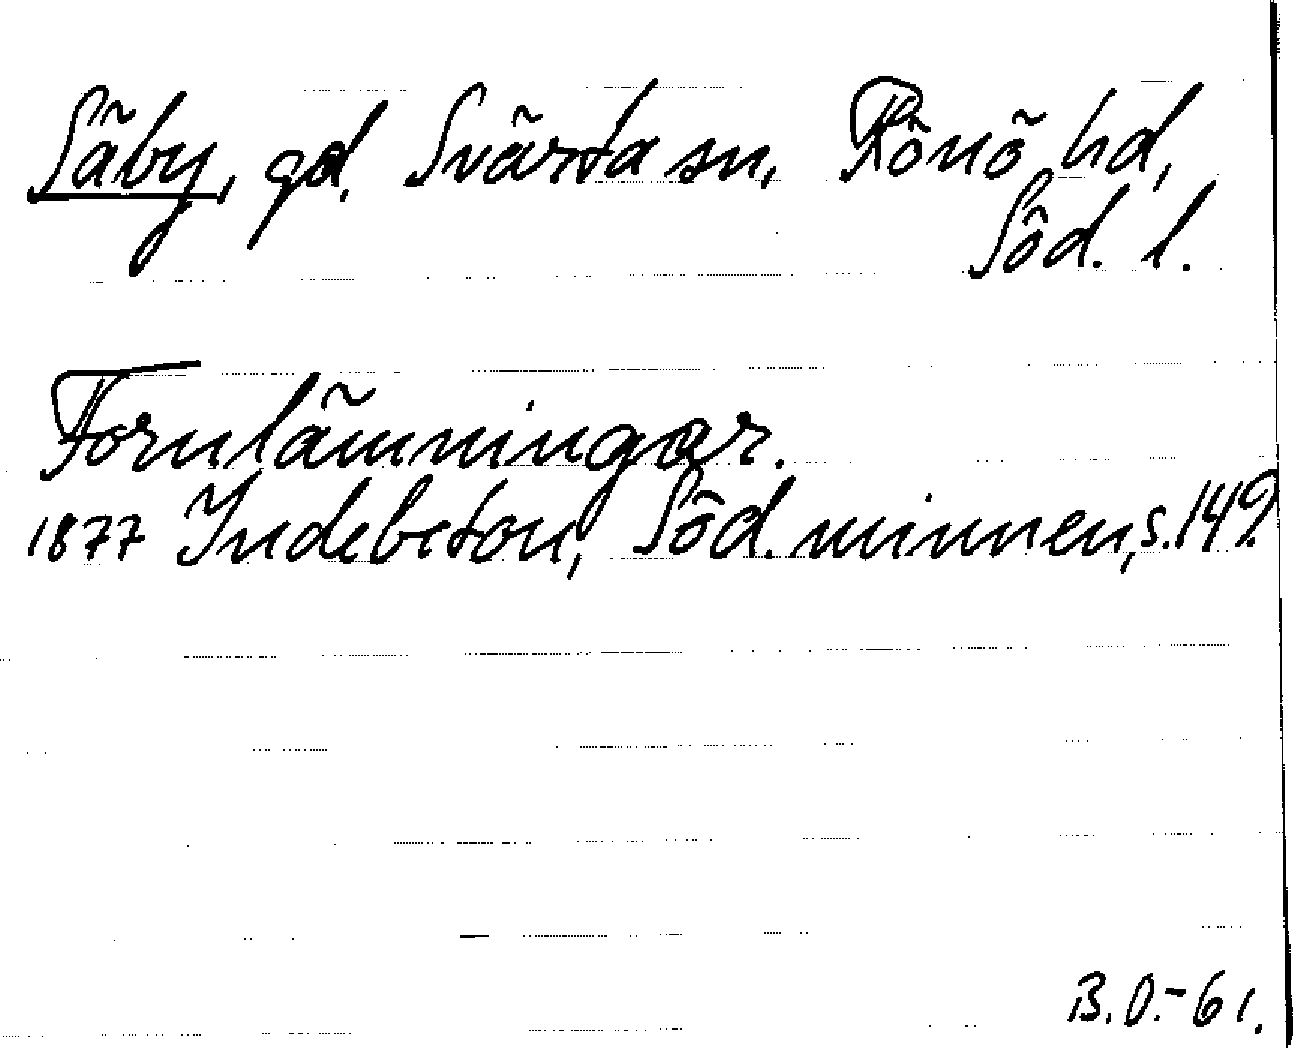 Säby, gd. Svärta sn, Rönö hd,
Söd. l.
Fornlämningar.
1877 Indebetou, Söd. minnen, s. 149.
B.O.-61.